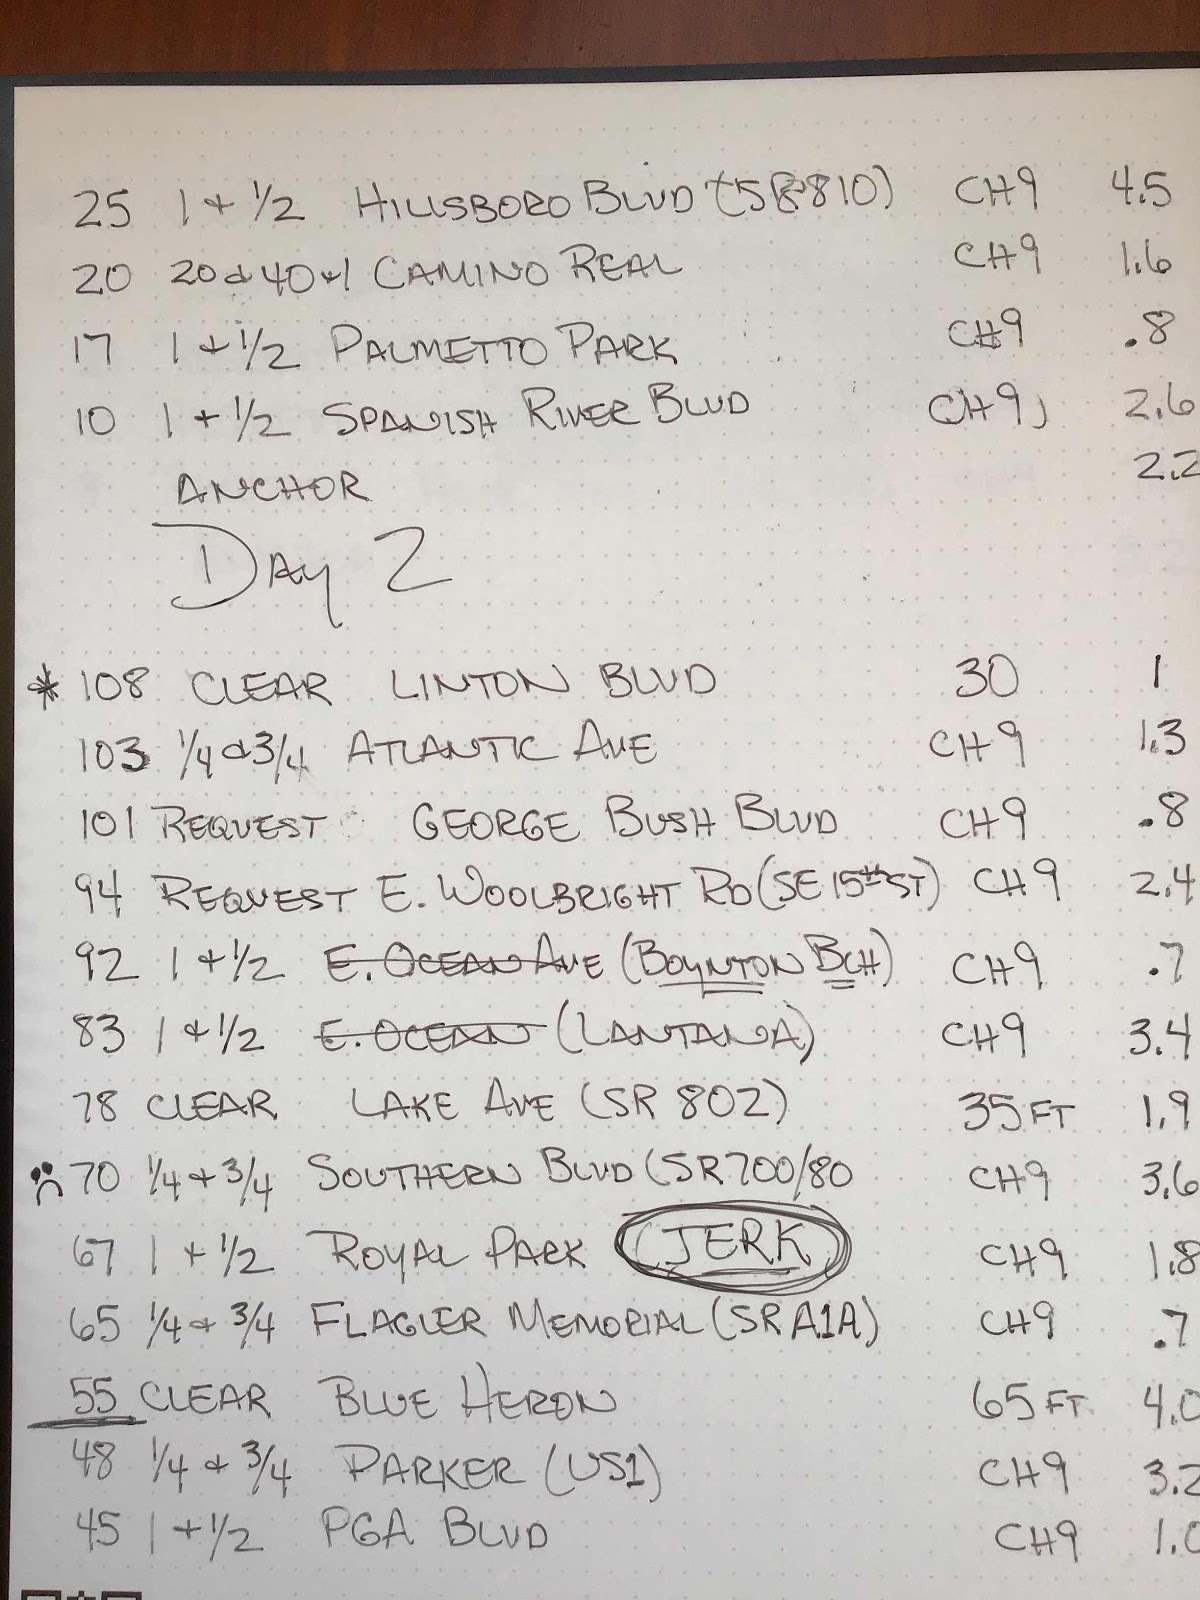 25 1 + 1/2 HILLSBORO BLVD (SR-810) CH9 4.5
20 20 & 40 +1 CAMINO REAL CH9 1.6
17 1 + 1/2 PALMETTO PARK CH9 .8
10 1 + 1/2 SPANISH RIVER BLVD CH9 2.6
ANCHOR 2.2
DAY 2
* 108 CLEAR LINTON BLVD 30 1
103 1/4 & 3/4 ATLANTIC AVE CH9 1.3
101 REQUEST GEORGE BUSH BLVD CH9 .8
94 REQUEST E. WOOLBRIGHT RD (SE 15th ST) CH9 2.4
92 1 + 1/2 E. OCEAN AVE (BOYNTON BCH) CH9 .7
83 1 + 1/2 E. OCEAN (LANTANA) CH9 3.4
78 CLEAR LAKE AVE (SR 802) 35 FT 1.9
70 1/4 + 3/4 SOUTHERN BLVD (SR 700/80 CH9 3.6
67 1 + 1/2 ROYAL PARK JERK CH9 1.8
65 1/4 + 3/4 FLAGLER MEMORIAL (SR A1A) CH9 .7
55 CLEAR BLUE HERON 65 FT 4.0
48 1/4 + 3/4 PARKER (US1) CH9 3.2
45 1 + 1/2 PGA BLVD CH9 1.0